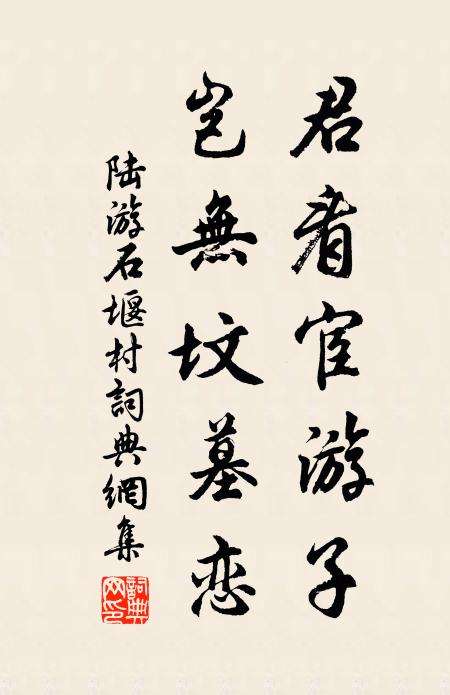 君看宦游子
岂無坟墓恋
陆游石堰村詞典網集
詞典网印